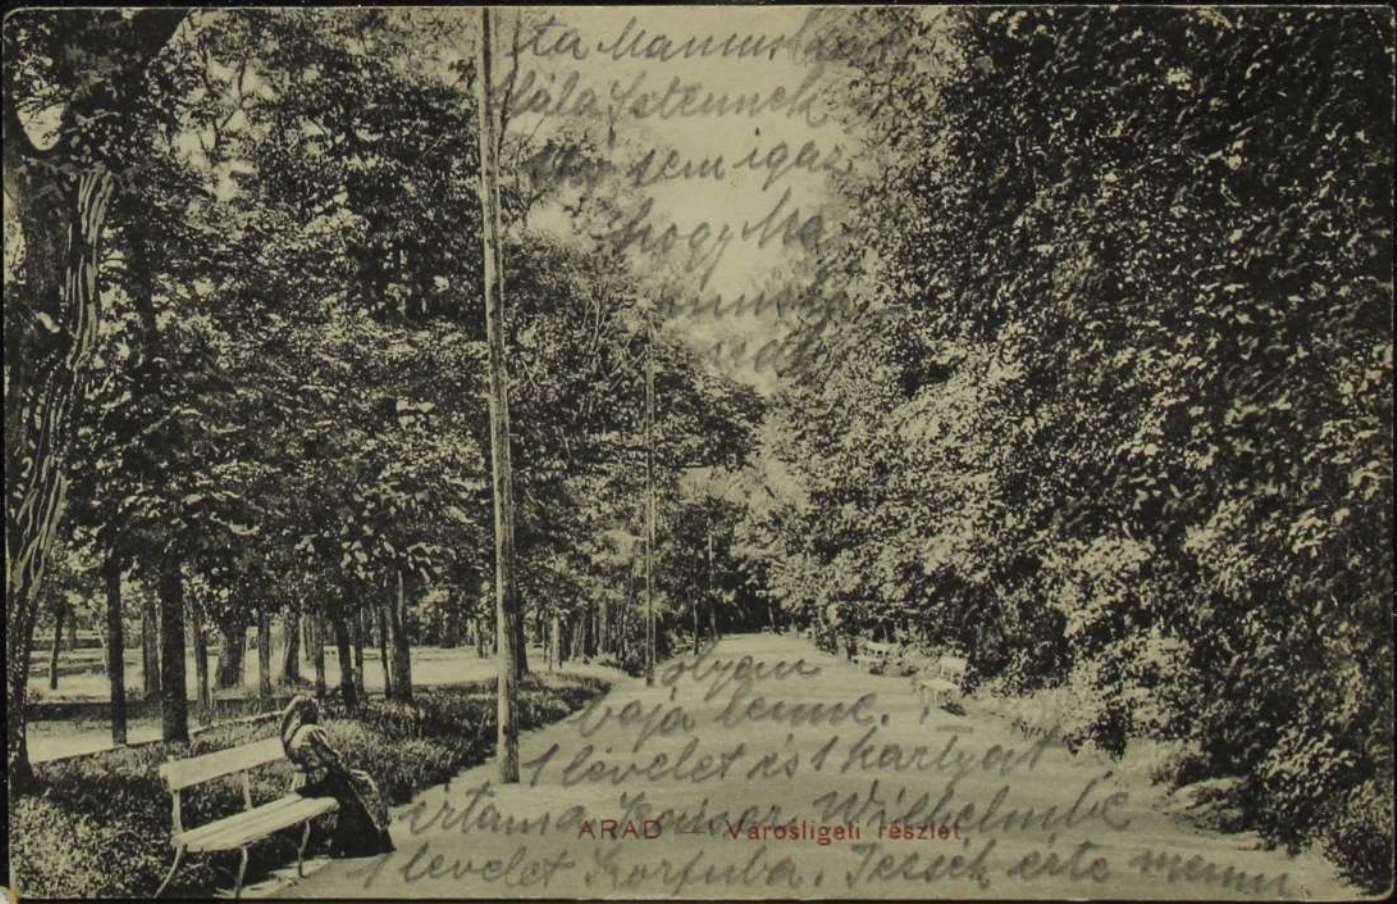 ta Mamuska
Hála Istennek
sem igaz
hogy Ma
muska
nak
olyan
baja lenne.
1 levelet és 1 kartyát
irtam a Kaiser Wilhelmbe
ARAD — Városligeti részlet
1 levelet Korfuba. Tessék érte menni